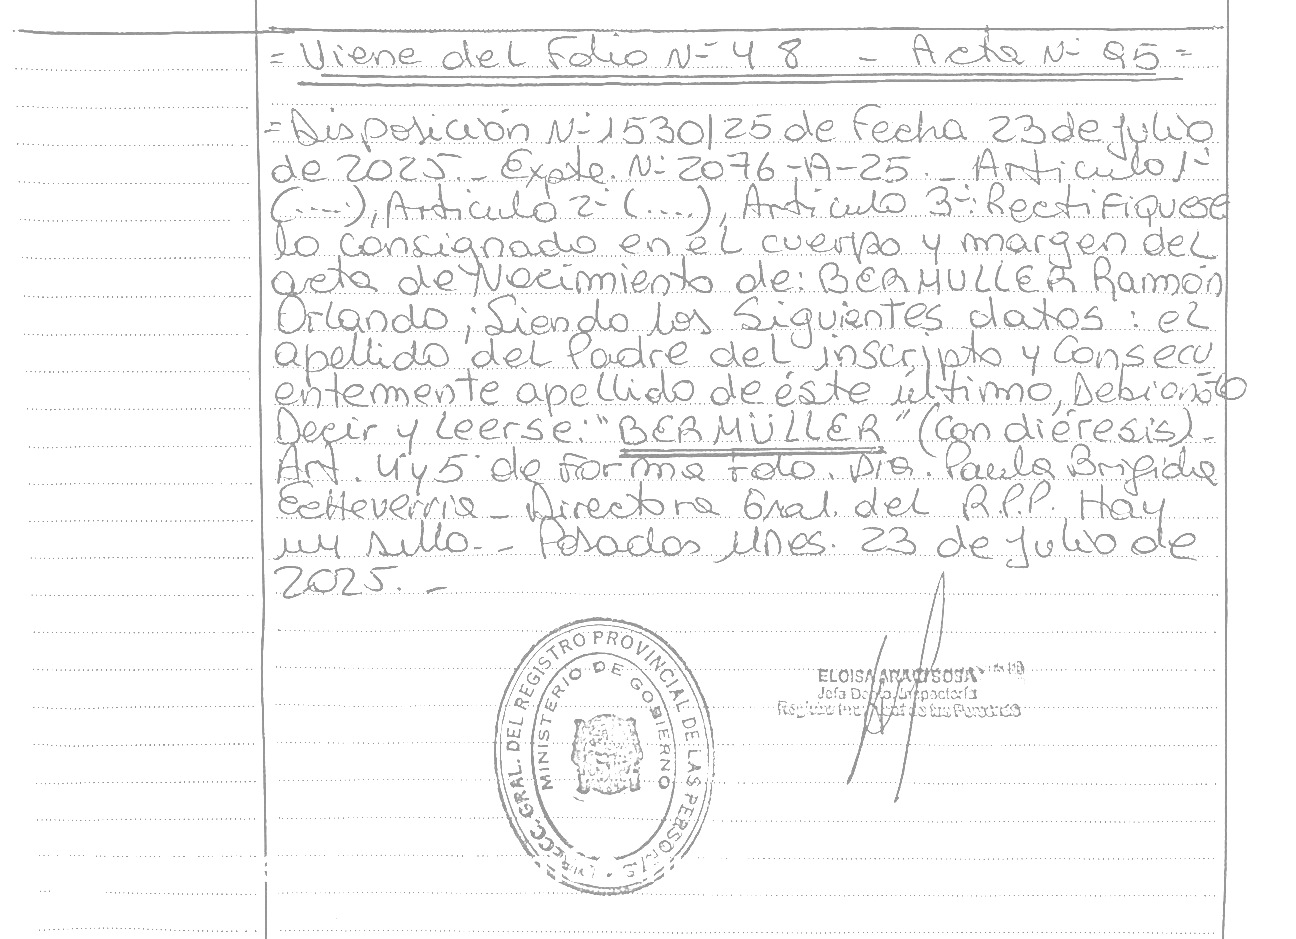 = Viene del Folio Nº 48 - Acta Nº 95 =
= Disposición Nº 1530/25 de Fecha 23 de julio
de 2025.- Expte. Nº 2076-A-25.- Artículo 1º
(.....), Artículo 2º (....), Artículo 3º: Rectifiquese
lo consignado en el cuerpo y margen del
acta de Nacimiento de: BERMULLER Ramón
Orlando; Siendo los Siguientes datos: el
apellido del Padre del inscripto y Consecu
entemente apellido de éste último, Debiendo
Decir y Leerse: "BERMÜLLER" (con diéresis).-
Art. 4 y 5 de Forma Fdo. Dra. Paula Brigida
Echeverria - Directora Gral. del R.P.P. Hay
un sello.- Posadas Mnes. 23 de julio de
2025.-
DIRECC. GRAL. DEL REGISTRO PROVINCIAL DE LAS PERSONAS
MINISTERIO DE GOBIERNO
ELOISA ARACI SOSA
Jefa Dpto. Inspectoría
Registro Provincial de las Personas